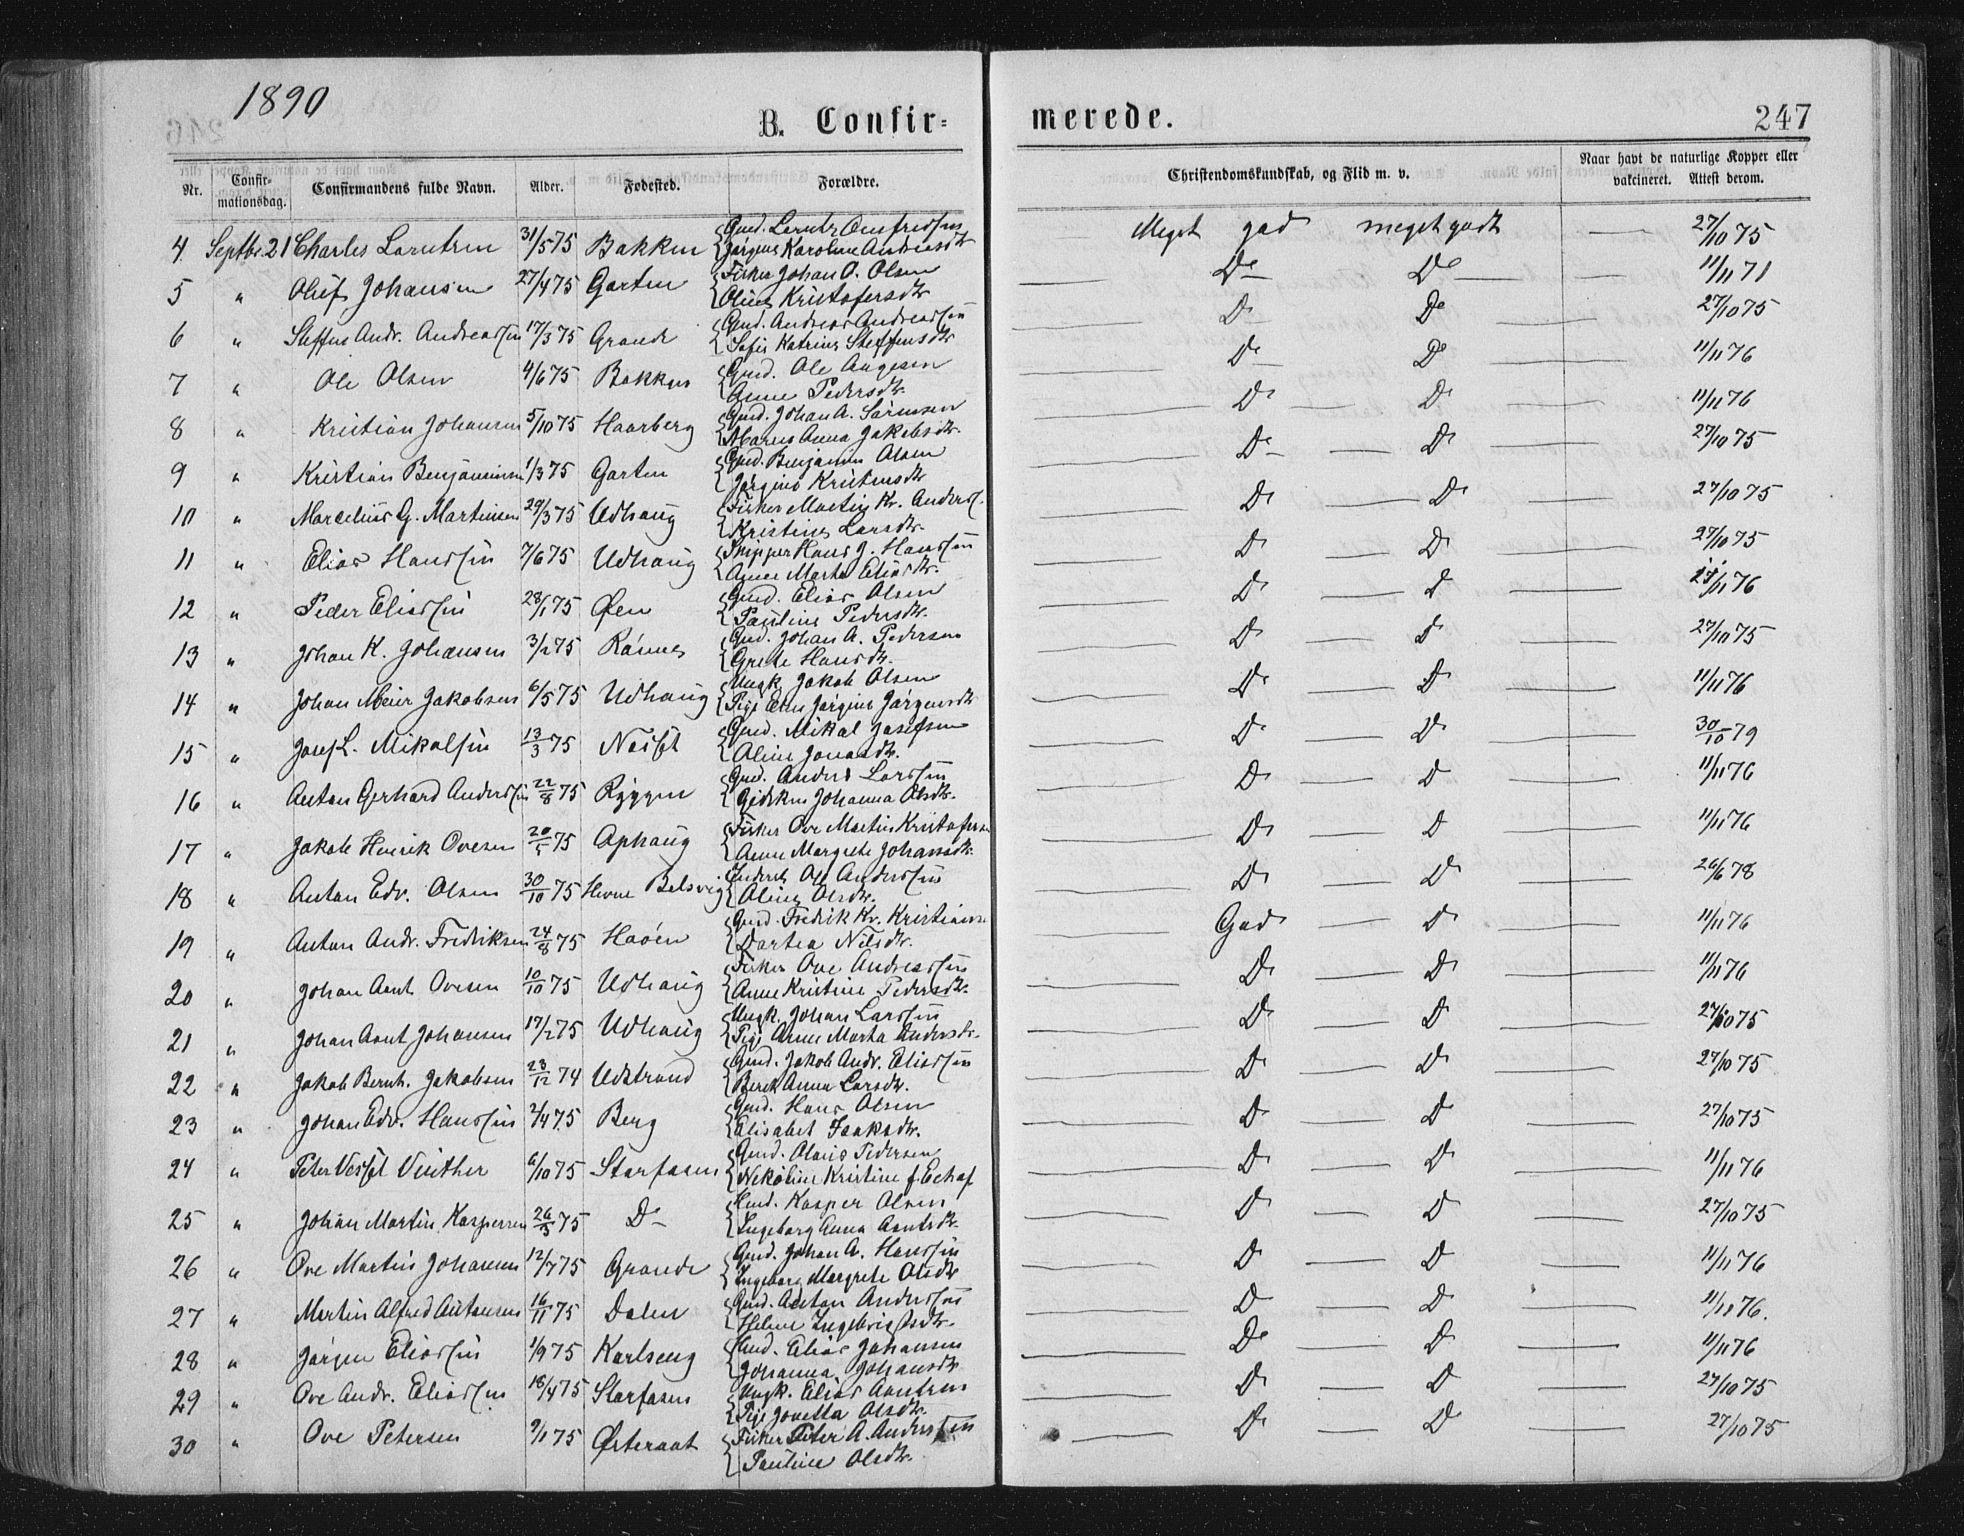 1890
B. Confir-
merede.
247
Nr.
Confir-
mationsdag.
Confirmandens fulde Navn.
Alder.
Fødested.
Forældre.
Christendomskundskab, og Flid m. v.
Naar havt de naturlige Kopper eller
vakcineret. Attest derom.
4 Septbr. 21 Charles Larntzen 31/5 75 Bakken Gmd. Larntz
Karoline Andreasdtr Meget god meget godt 27/10 75
5 " Oluf Johansen 27/4 75 Garten Fisker Johan O. Olsen
Kristofersdtr Do Do 11/11 71
6 " Steffen Andr. Andreassen 17/3 75 Grande Gmd. Andreas Andreassen
Sofie Katrine Steffensdtr Do Do 27/10 75
7 " Ole Olsen 4/6 75 Bakken Gmd. Ole Aagesen
Anne Pedersdtr. Do Do 11/11 76
8 " Kristian Johansen 5/10 75 Haarberg Gmd. Johan A. Sörensen
Maren Anna Jakobsdtr. Do Do 11/11 76
9 " Kristian Benjaminsen 1/3 75 Garten Gmd. Benjamin Olsen
Jörgine Kristensdtr Do Do 27/10 75
10 " Marcelius G. Martinsen 29/3 75 Udhaug Fisker Martin Kr. Anders.
Kristine Larsdtr. Do Do 27/10 75
11 " Elias Hanssen 7/6 75 Udhaug Skipper Hans J. Hanssen
Anne Marta Eliasdtr. Do Do 27/10 75
12 " Peder Eliassen 28/1 75 Øen Gmd. Elias Olsen
Pauline Pedersdtr. Do Do /11 76
13 " Johan K. Johansen 3/2 75 Rönnes Gmd. Johan A. Pedersen
Grete Hansdtr. Do Do 27/10 75
14 " Johan Meier Jakobsen 6/5 75 Udhaug Ungk. Jakob Olsen
Pige Jörgine Jörgensdtr Do Do 11/11 76
15 " Josef L. Mikalsen 13/3 75 Næsset Gmd. Mikal Josefsen
Aline Jonasdtr. Do Do 30/10 79
16 " Anton Gerhard Anderssen 22/8 75 Ryggen Gmd. Anders Larssen
Gidsken Johanna Olsdtr. Do Do 11/11 76
17 " Jakob Henrik Ovesen 20/5 75 Ophaug Fisker Ove Martin Kristofersen
Anne Margrete Johansdtr. Do Do 11/11 76
18 " Anton Edv. Olsen 30/10 75 Hevne Belsvig Inderst Ole Anderssen
Olsdtr. Do Do 26/6 78
19 " Anton Andr. Fredriksen 24/8 75 Haöen Gmd. Fredrik Kr. Kristians.
Dortea Nilsdtr. God Do 11/11 76
20 " Johan Arnt Ovesen 10/10 75 Udhaug Fisker Ove Andreassen
Anne Kristine Pedersdtr. Do Do 11/11 76
21 " Johan Arnt Johansen 17/2 75 Udhaug Ungk. Johan Larssen
Pige Anne Marta Andersdtr. Do Do 27/10 75
22 " Jakob Bernh. Jakobsen 23/12 74 Udstrand Gmd. Jakob Andr. Eliassen
Beret Anna Larsdtr. Do Do 27/10 75
23 " Johan Edv. Hanssen 2/4 75 Berg Gmd. Hans Olsen
Elisabet Isaksdtr. Do Do 27/10 75
24 " Peter Vessel Vinther 6/10 75 Storfosen Gmd. Olaus Pedersen
Nekoline Kristine f. Do Do 11/11 76
25 " Johan Martin Kaspersen 26/3 75 Do Hmd. Kasper Olsen
Ingeborg Anna Arntsdtr. Do Do 27/10 75
26 " Ove Martin Johansen 12/7 75 Grande Gmd. Johan A. Hanssen
Ingeborg Margrete Olsdtr Do Do 11/11 76
27 " Martin Alfred Antonsen 16/11 75 Dalen Gmd. Anton Anderssen
Helene Ingebrigtsdtr. Do Do 11/11 76.
28 " Jörgen Eliassen 1/9 75 Karlseng Hmd. Elias Johansen
Johanna Johansdtr Do Do 11/11 76
29 " Ove Andr. Eliassen 18/4 75 Storfosen Ungk. Elias Arntsen
Pige Jonetta Olsdtr. Do Do 27/10 75
30 " Ove Petersen 9/1 75 Østeraat Fisker Peter A. Anderssen
Pauline Olsdtr. Do Do 27/10 75